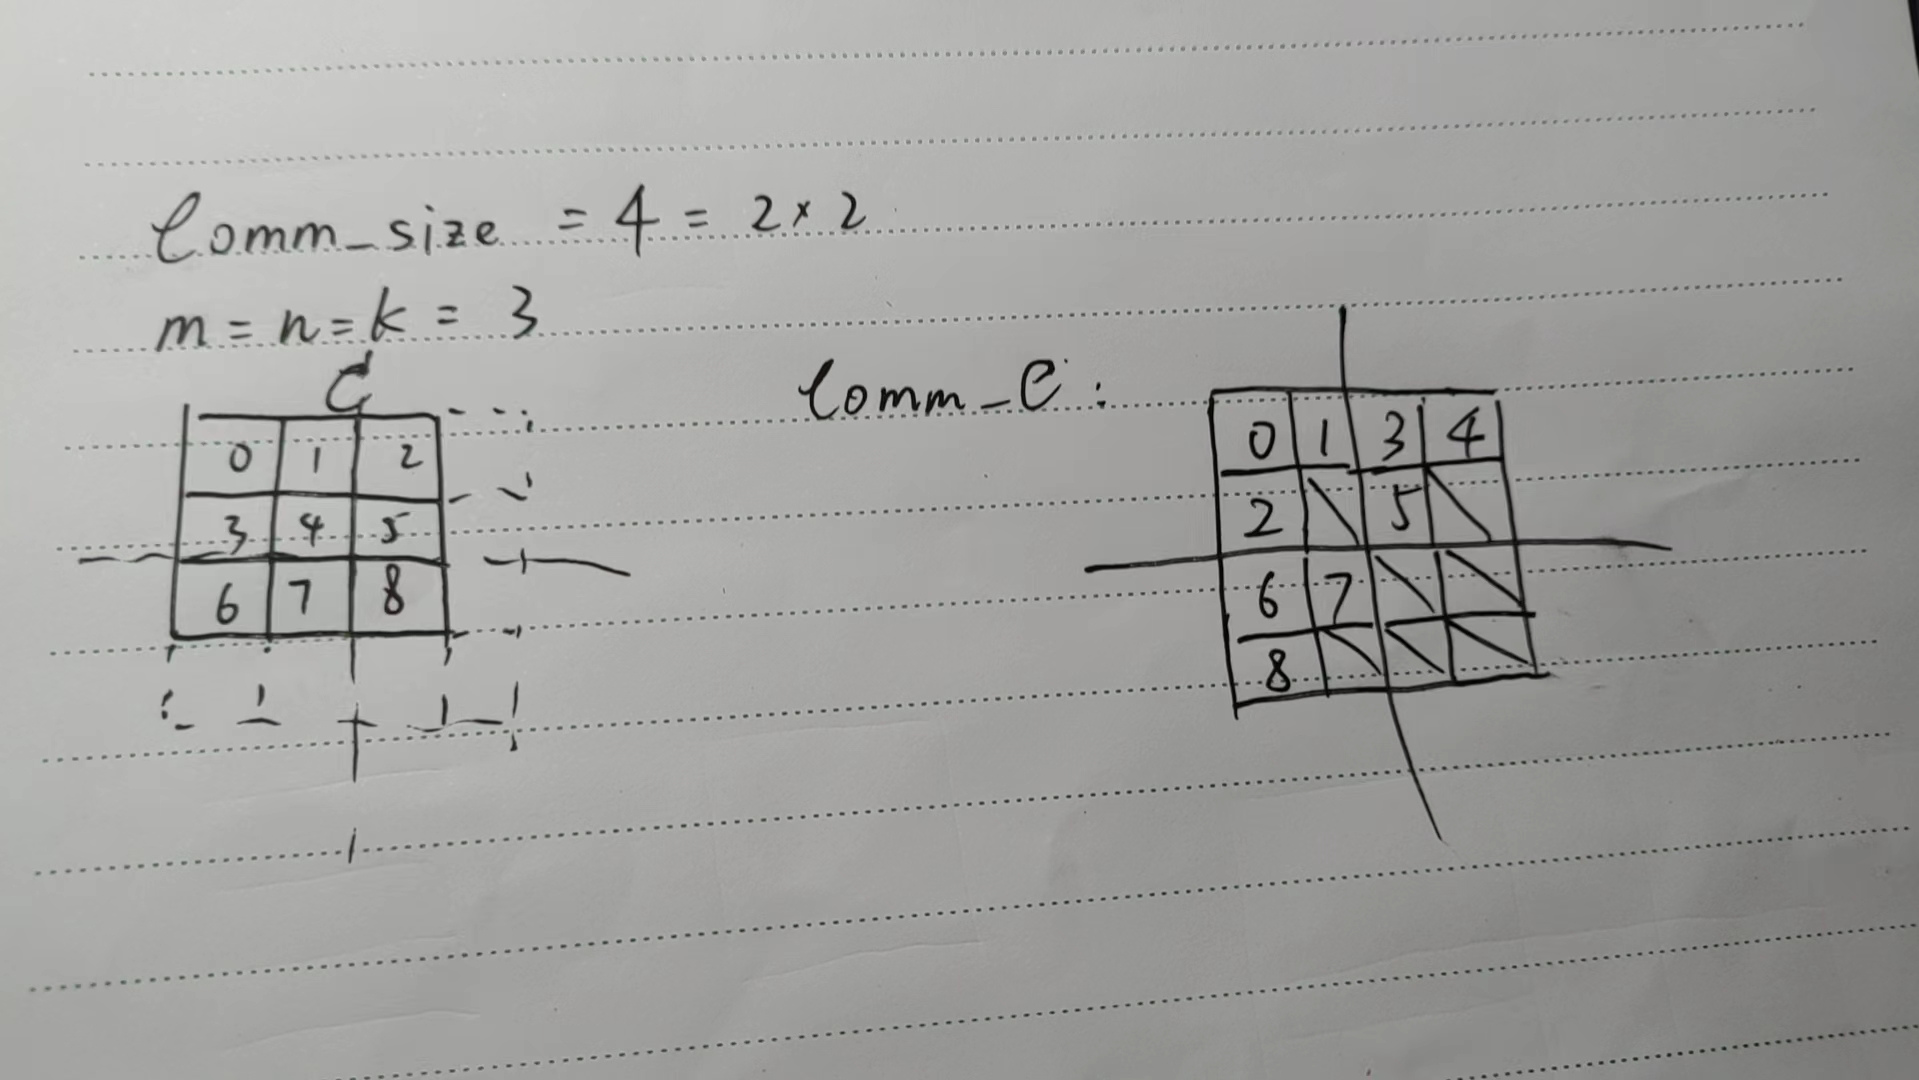 Comm_size = 4 = 2 × 2
m = n = k = 3
C
0 1 2
3 4 5
6 7 8
Comm_C :
0 1 3 4
2 \ 5 \
6 7 \ \
8 \ \ \